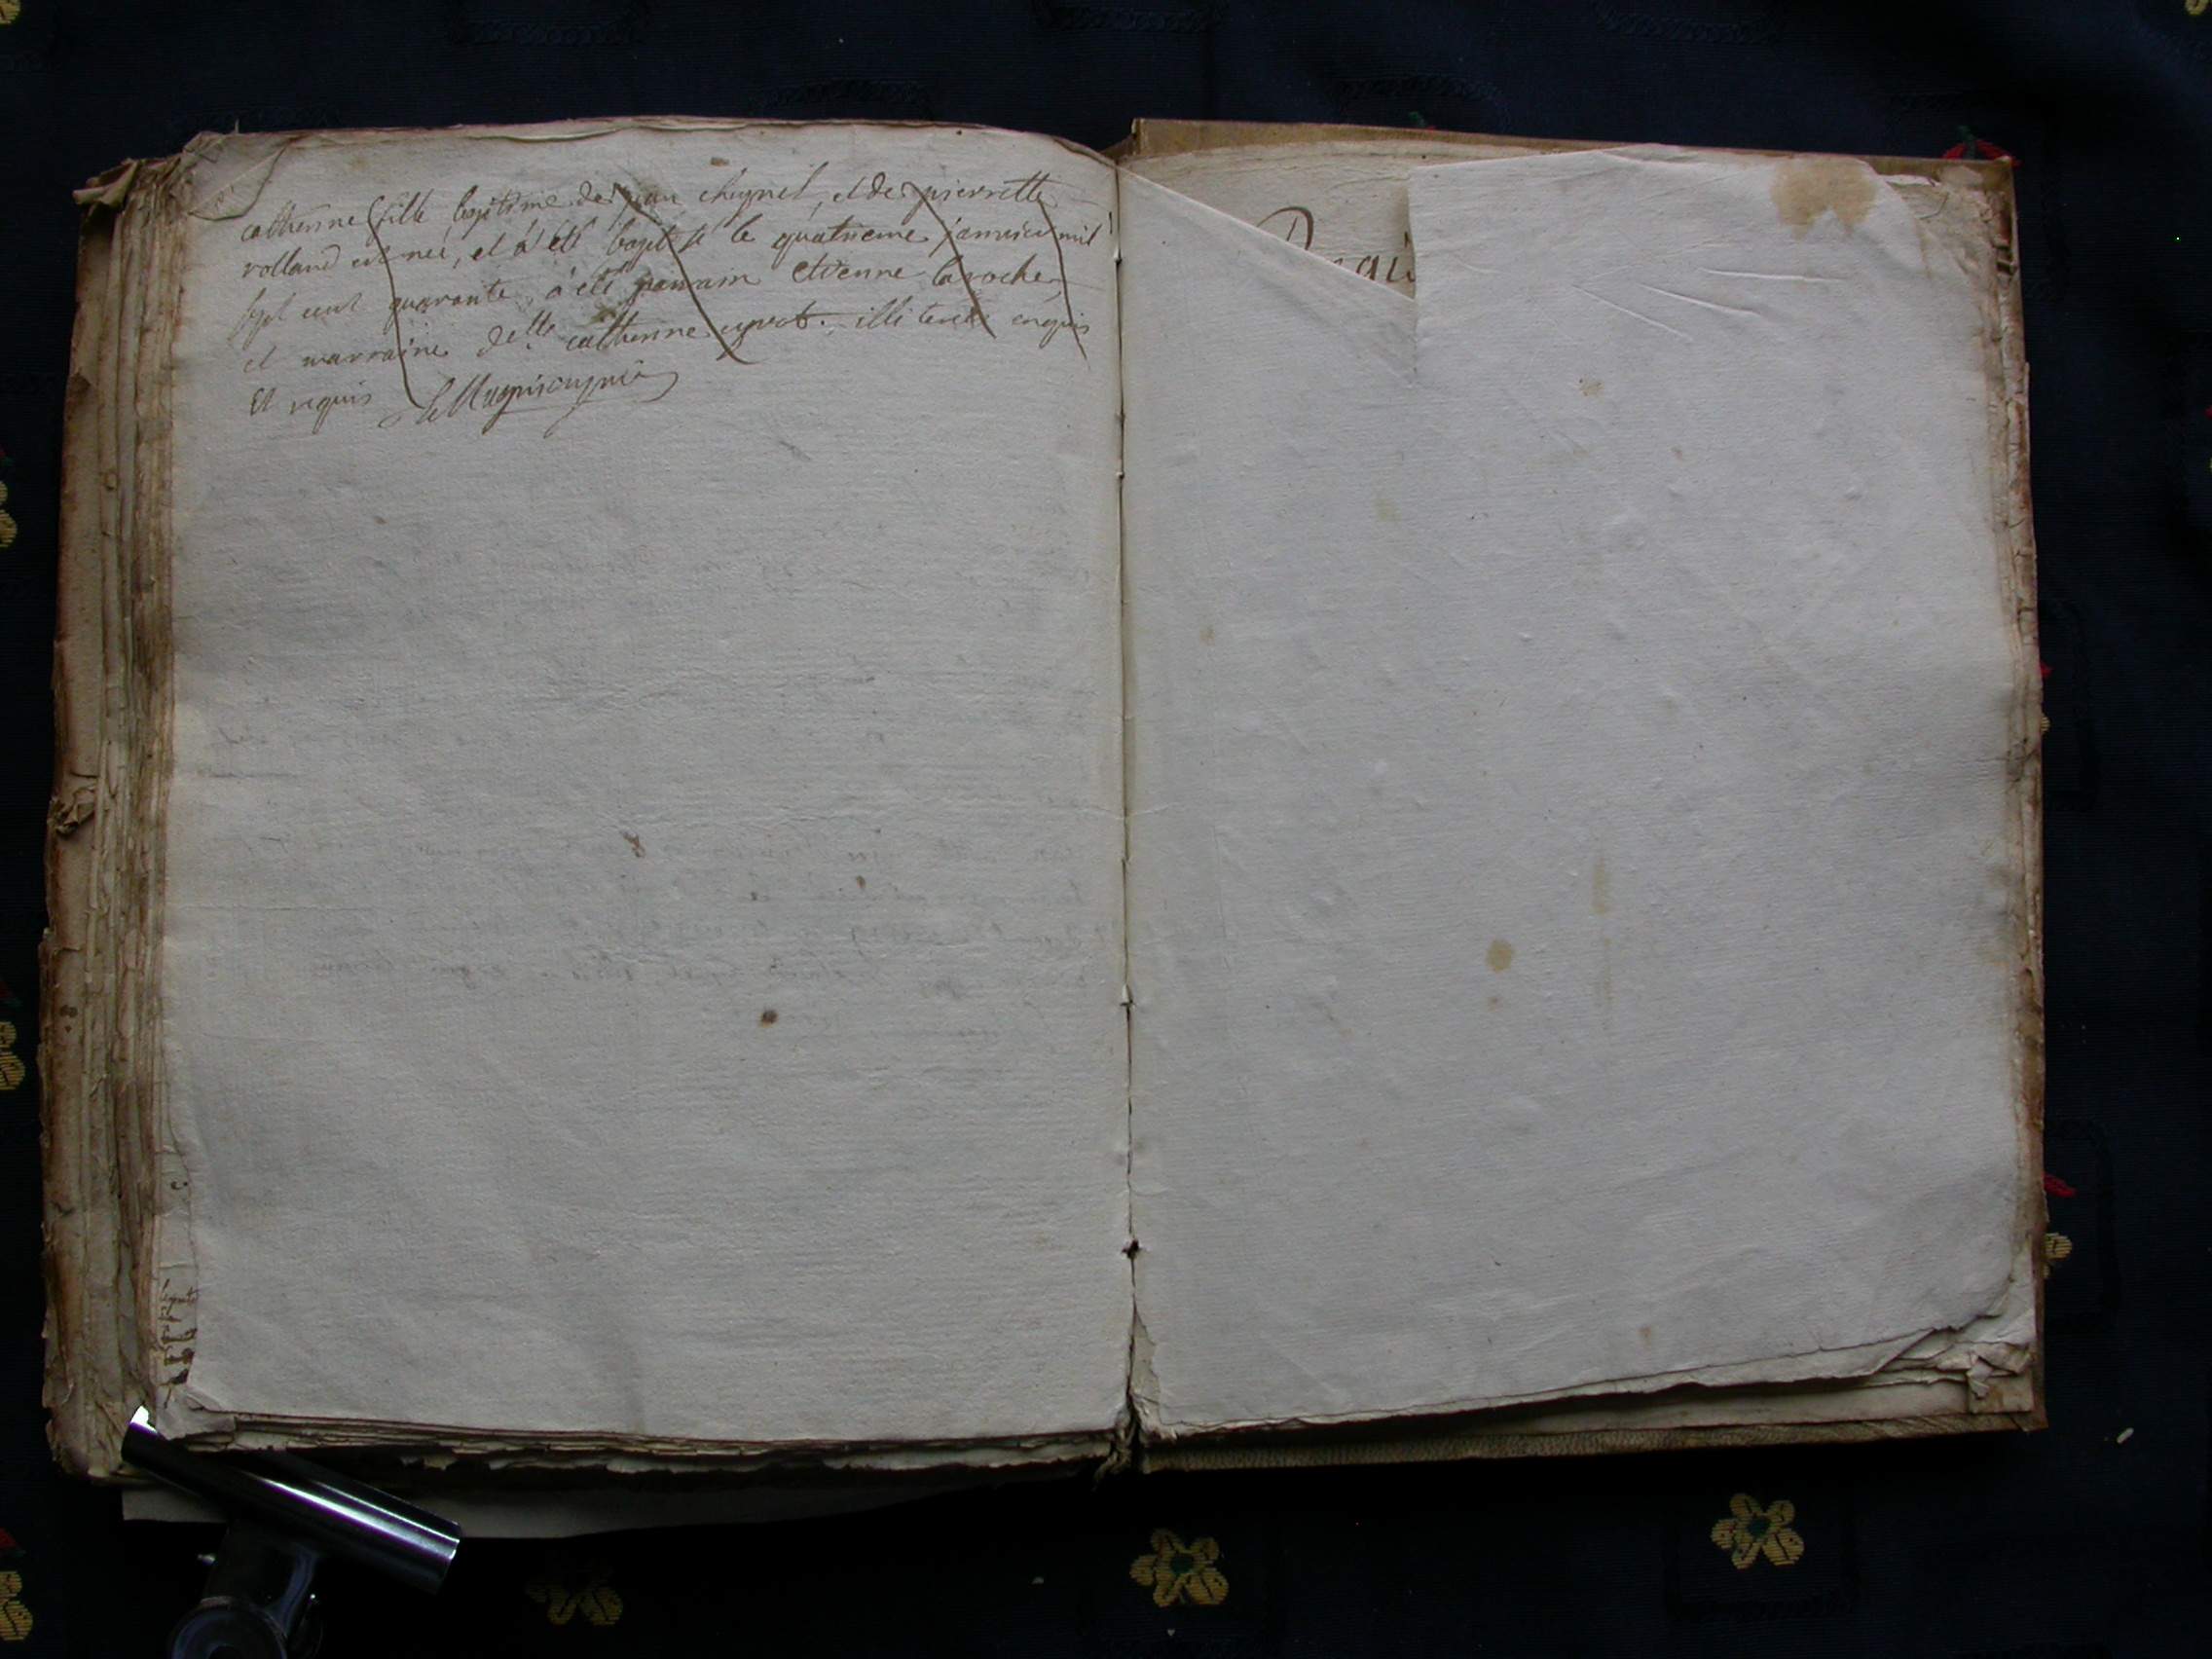 catherine fille legitime de jean chignet, et de pierrette
rolland est neé, et à été baptisé le quatrieme janvier mil
sept cent quarante, à été parrain etienne laroche,
et marraine delle catherine illiterés enquis
Et requis